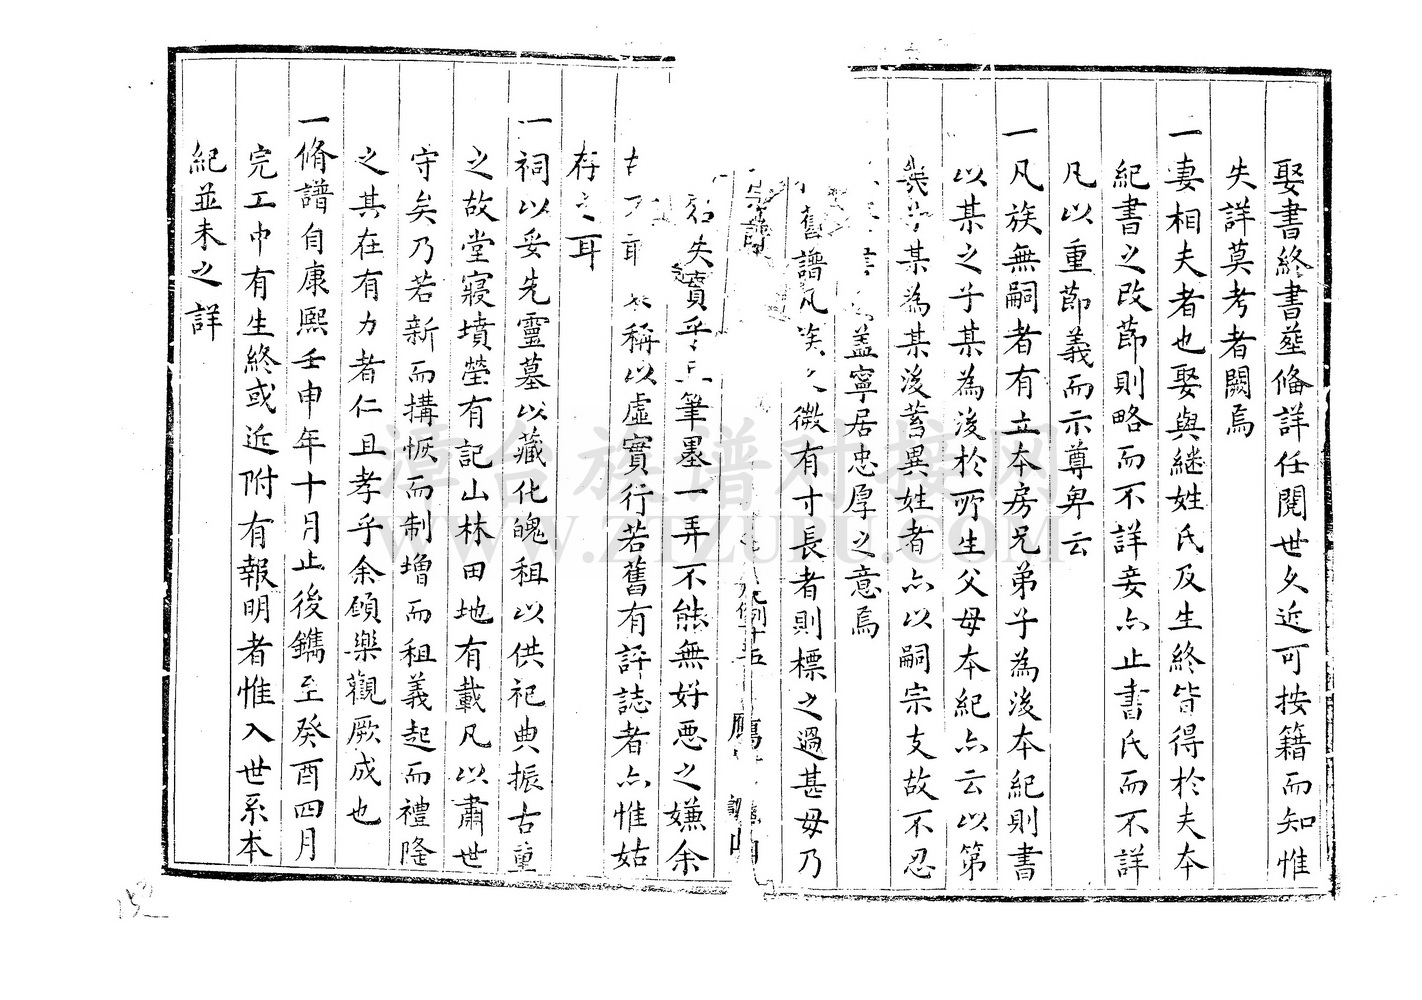 娶書終書塟俻詳任閱世夂近可按籍而知惟
失詳莫考者闕焉
一妻相夫者也娶與継姓氏及生終皆得於夫本
紀書之改莭則略而不詳妾亦止書氏而不詳
凡以重莭義而示尊卑云
一凡族無嗣者有立本房兄弟子為後本紀則書
以某之子某為後於所生父母本紀亦云以第
幾子某為某後蓄異姓者亦以嗣宗支故不忍
蓋寧居忠厚之意焉
舊譜凡微有寸長者則標之過甚毋乃
失實乎筆墨一弄不能無好惡之嫌余
稱以虛實行若舊有評誌者亦惟姑
存之耳
一祠以妥先靈墓以藏化魄租以供祀典振古重
之故堂寢墳塋有記山林田地有載凡以肅世
守矣乃若新而搆恢而制增而租義起而禮隆
之其在有力者仁且孝乎余頋樂觀厥成也
一脩譜自康熙壬申年十月止後鐫至癸酉四月
完工中有生終或近附有報明者惟入世系本
紀並未之詳
潭台族谱对接网
WWW.ZTZUPU.COM
152